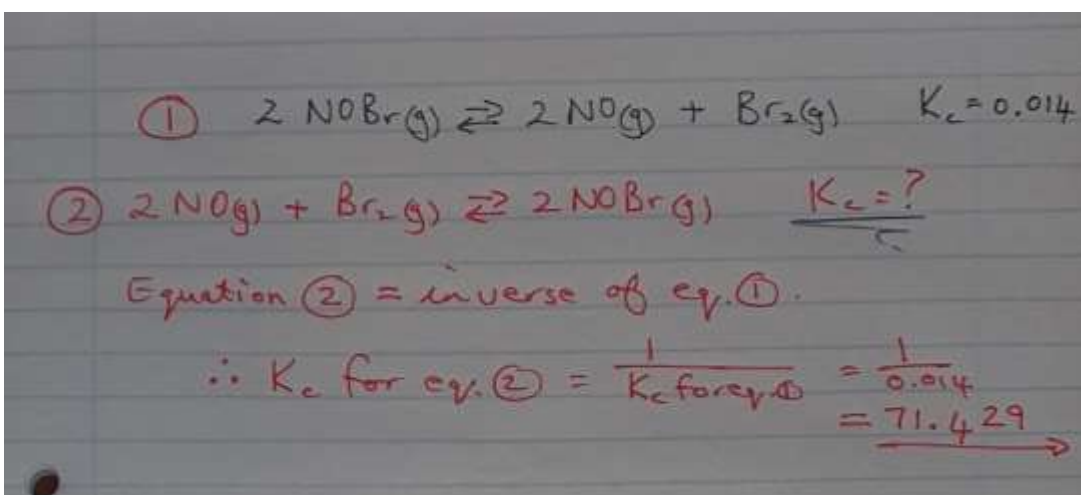 ① 2 NOBr(g) ⇄ 2 NO(g) + Br₂(g) K꜀ = 0.014
② 2 NO(g) + Br₂(g) ⇄ 2 NOBr(g) K꜀ = ?
Equation ② = inverse of eq. ①.
∴ K꜀ for eq. ② = 1 / K꜀ for eq. ① = 1 / 0.014
= 71.429